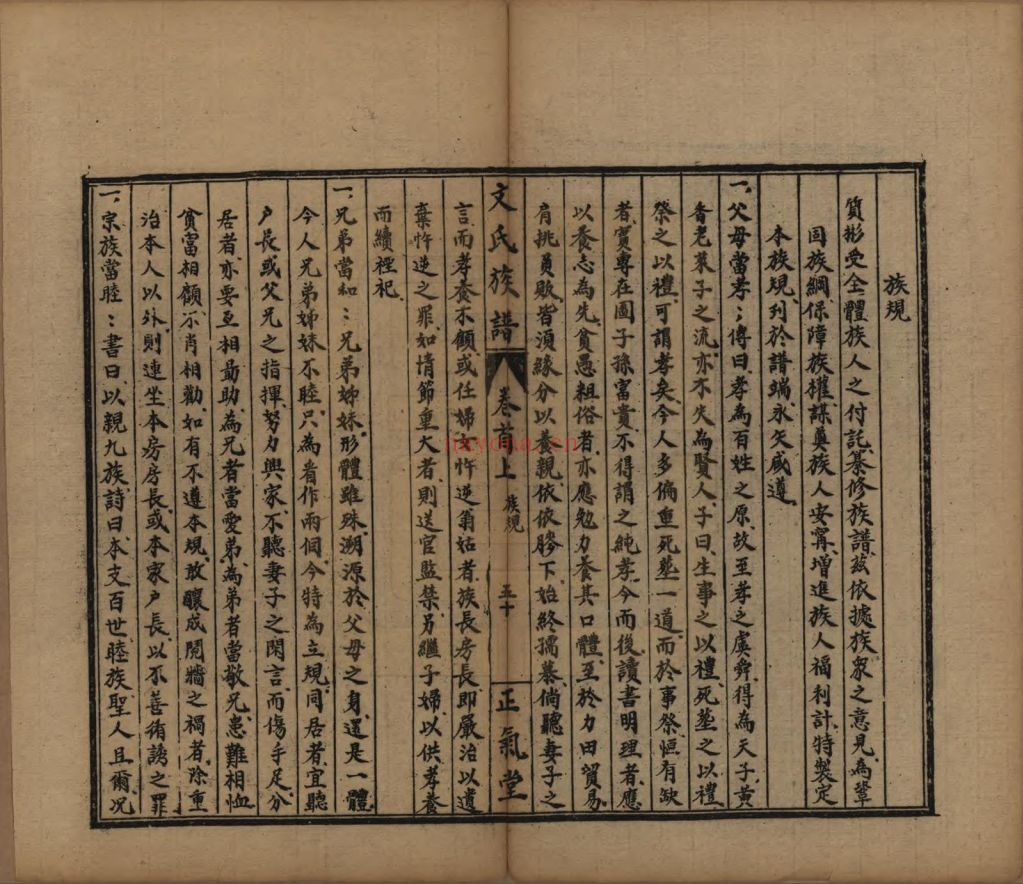 族規
質彬受全體族人之付託綦修族譜茲依據族眾之意見、為鞏
固族綱、保障族權、謀奠族人安寗、增進族人福利計、特製定
本族規、列於譜端、永矢咸遵、
一、父母當孝：傳曰、孝為百姓之原、故至孝之虞舜、得為天子、黃
香老萊子之流、亦不失為賢人、子曰、生事之以禮、死塟之以禮、
祭之以禮、可謂孝矣、今人多偏重死塟一道、而於事祭恒有缺
者、實專在圖子孫富貴、不得謂之純孝、今而後讀書明理者、應
以養志為先、貧愚粗俗者、亦應勉力養其口體、至於力田貿易、
肩挑負販、皆須緣分以養親、依依膝下、始終孺慕、倘聽妻子之
文氏族譜 卷首上 族規 五十 正氣堂
言、而孝養不顧、或任婦女忤逆翁姑者、族長房長、即嚴治以遺
棄忤逆之罪、如情節重大者、則送官監禁、另繼子婦、以供孝養、
而續禋祀、
一、兄弟當和：兄弟姊妹、形體雖殊、溯源於父母之身、還是一體、
今人兄弟姊妹不睦、只為看作兩個、今特為立規、同居者、宜聽
户長或父兄之指揮、努力興家、不聽妻子之閑言、而傷手足、分
居者、亦要互相勗助、為兄者當愛弟、為弟者當敬兄、患難相恤、
貧富相顧、不肖相勸、如有不遵本規、敢釀成鬩牆之禍者、除重
治本人以外、則連坐本房房長、或本家户長、以不善侑誘之罪
一、宗族當睦：書曰、以親九族、詩曰、本支百世、睦族聖人且爾、况